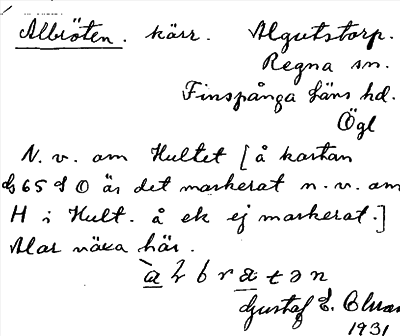 Albröten. kärr. Algutstorp.
Regna sn.
Finspånga läns hd.
Ögl
N. v. om Hultet [å kartan
65 Ö är det markerat n. v. om
H i Hult. å ek ej markerat.]
Alar växa här.
Gustaf E.
1931